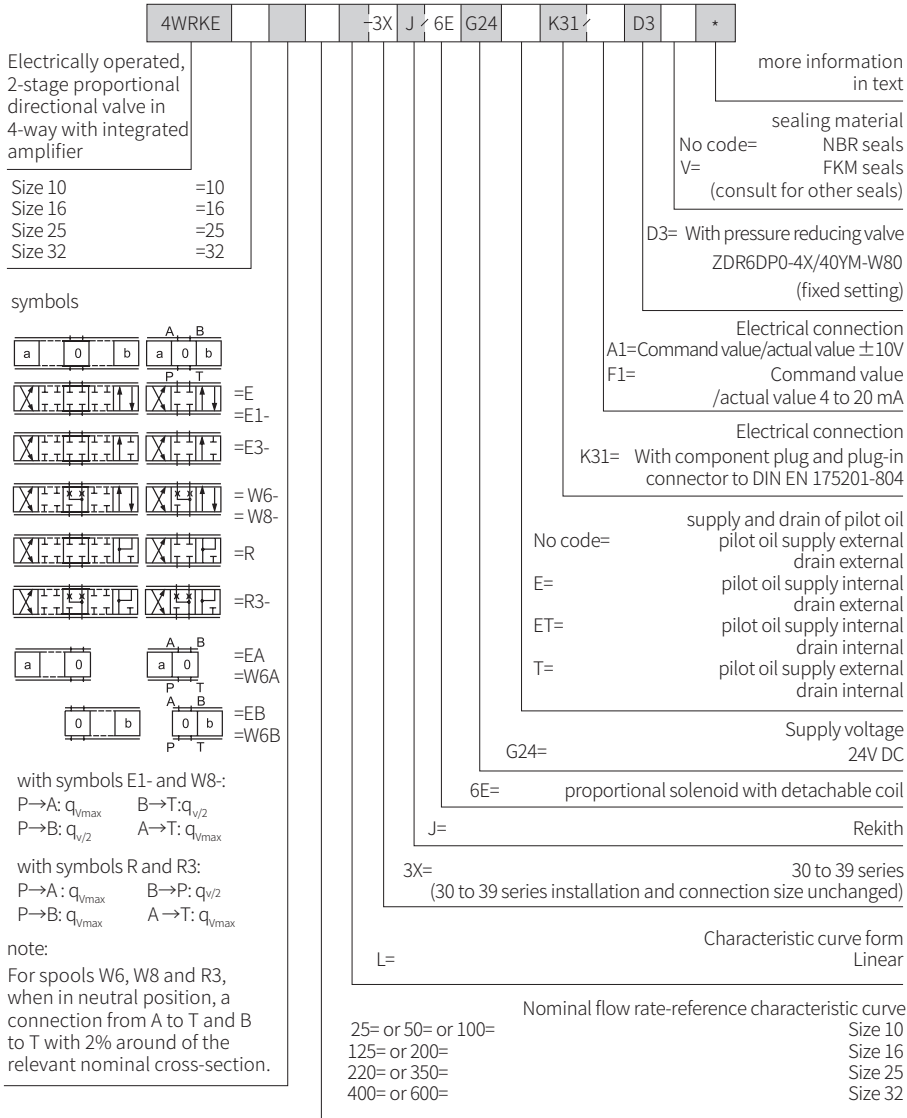 4WRKE -3X J / 6E G24 K31 / D3 *
Electrically operated,
2-stage proportional
directional valve in
4-way with integrated
amplifier
Size 10 =10
Size 16 =16
Size 25 =25
Size 32 =32
symbols
A B
a 0 b a 0 b
P T
=E
=E1-
=E3-
= W6-
= W8-
=R
=R3-
A B
a 0 a 0
P T
=EA
=W6A
A B
0 b 0 b
P T
=EB
=W6B
with symbols E1- and W8-:
P→A: qVmax B→T:qv/2
P→B: qv/2 A→T: qVmax
with symbols R and R3:
P→A : qVmax B→P: qv/2
P→B: qVmax A →T: qVmax
note:
For spools W6, W8 and R3,
when in neutral position, a
connection from A to T and B
to T with 2% around of the
relevant nominal cross-section.
more information
in text
sealing material
No code= NBR seals
V= FKM seals
(consult for other seals)
D3= With pressure reducing valve
ZDR6DP0-4X/40YM-W80
(fixed setting)
Electrical connection
A1=Command value/actual value ±10V
F1= Command value
/actual value 4 to 20 mA
Electrical connection
K31= With component plug and plug-in
connector to DIN EN 175201-804
supply and drain of pilot oil
No code= pilot oil supply external
drain external
E= pilot oil supply internal
drain external
ET= pilot oil supply internal
drain internal
T= pilot oil supply external
drain internal
Supply voltage
G24= 24V DC
6E= proportional solenoid with detachable coil
J= Rekith
3X= 30 to 39 series
(30 to 39 series installation and connection size unchanged)
Characteristic curve form
L= Linear
Nominal flow rate-reference characteristic curve
25= or 50= or 100= Size 10
125= or 200= Size 16
220= or 350= Size 25
400= or 600= Size 32